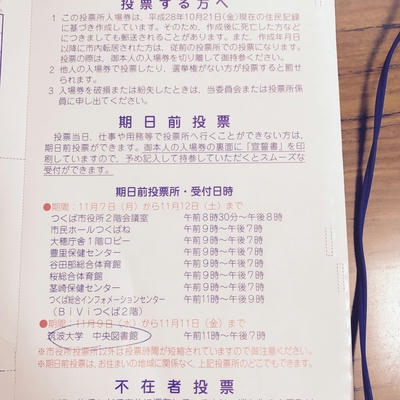 投票する方へ
1 この投票所入場券は、平成28年10月21日(金)現在の住民記録
に基づき作成しています。そのため、作成後に死亡した方など
につきましても郵送されることがあります。また、作成年月日
以降に市内転居された方は、従前の投票所での投票になります。
投票の際は、御本人の入場券を切り離して御持参ください。
2 他人の入場券で投票したり、選挙権がない方が投票すると罰せ
られます。
3 入場券を破損または紛失したときは、当委員会または投票所係
員に申し出てください。
期日前投票
投票当日、仕事や用務等で投票所へ行くことができない方は、
期日前投票ができます。御本人の入場券の裏面に「宣誓書」を印
刷していますので、予め記入して持参していただくとスムーズな
受付ができます。
期日前投票所・受付日時
●期間:11月7日(月)から11月12日(土)まで
つくば市役所2階会議室 午前8時30分~午後8時
市民ホールつくばね 午前9時~午後7時
大穂庁舎1階ロビー 午前9時~午後7時
豊里保健センター 午前9時~午後7時
谷田部総合体育館 午前9時~午後7時
桜総合体育館 午前9時~午後7時
茎崎保健センター 午前9時~午後7時
つくば総合インフォメーションセンター 午前11時~午後9時
(BiViつくば2階)
●期間:11月9日(水)から11月11日(金)まで
筑波大学 中央図書館 午前11時~午後7時
※市役所投票所以外は投票時間が短縮されていますので御注意ください。
※期日前投票は、お住まいの地域に関係なく、上記投票所のどこでもできます。
不在者投票